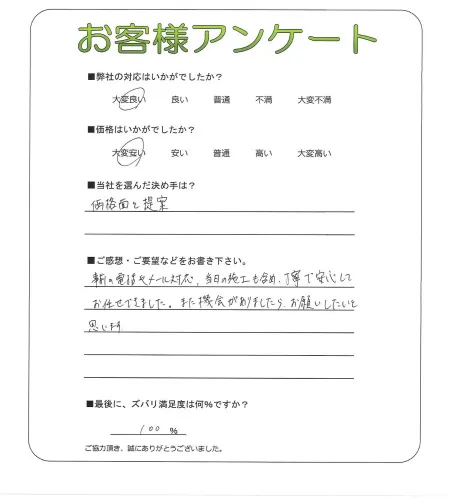 お客様アンケート
■弊社の対応はいかがでしたか？
大変良い 良い 普通 不満 大変不満
■価格はいかがでしたか？
大変安い 安い 普通 高い 大変高い
■当社を選んだ決め手は？
価格面と提案
■ご感想・ご要望などをお書き下さい。
電話やメール対応、当日の施工も含め、丁寧で安心して
お任せできました。また機会がありましたら、お願いしたいと
思います
■最後に、ズバリ満足度は何％ですか？
100 %
ご協力頂き、誠にありがとうございました。